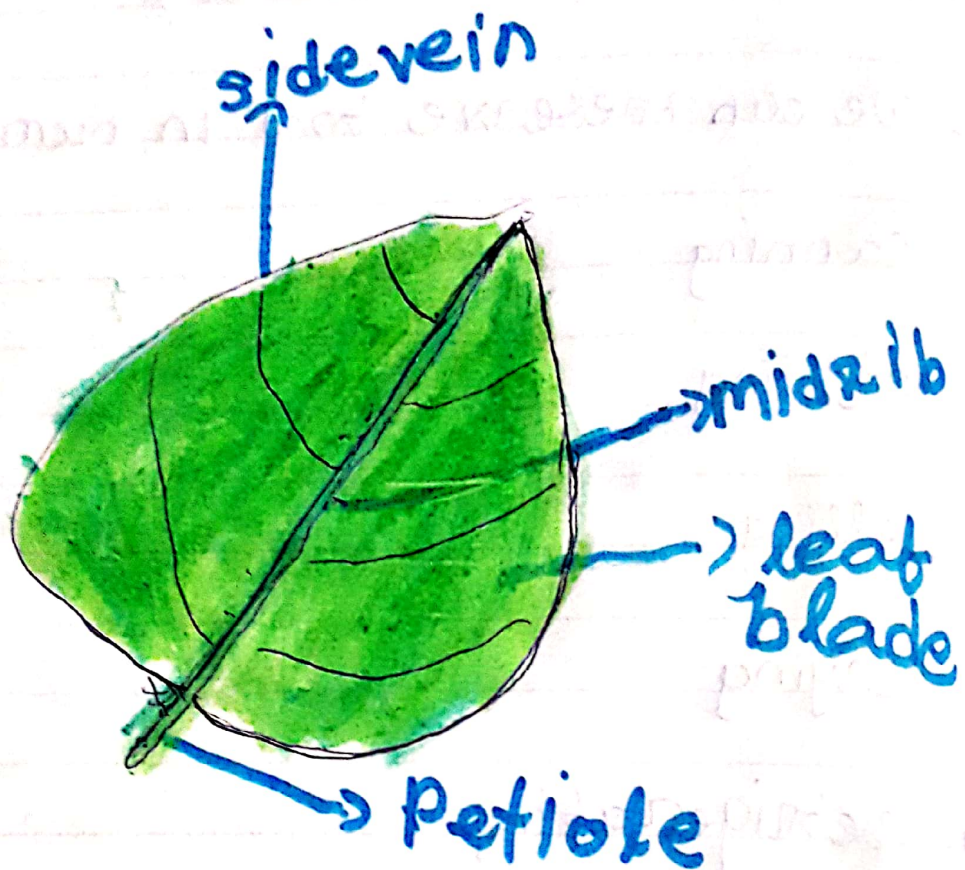 sidevein
midrib
leaf
blade
Petiole